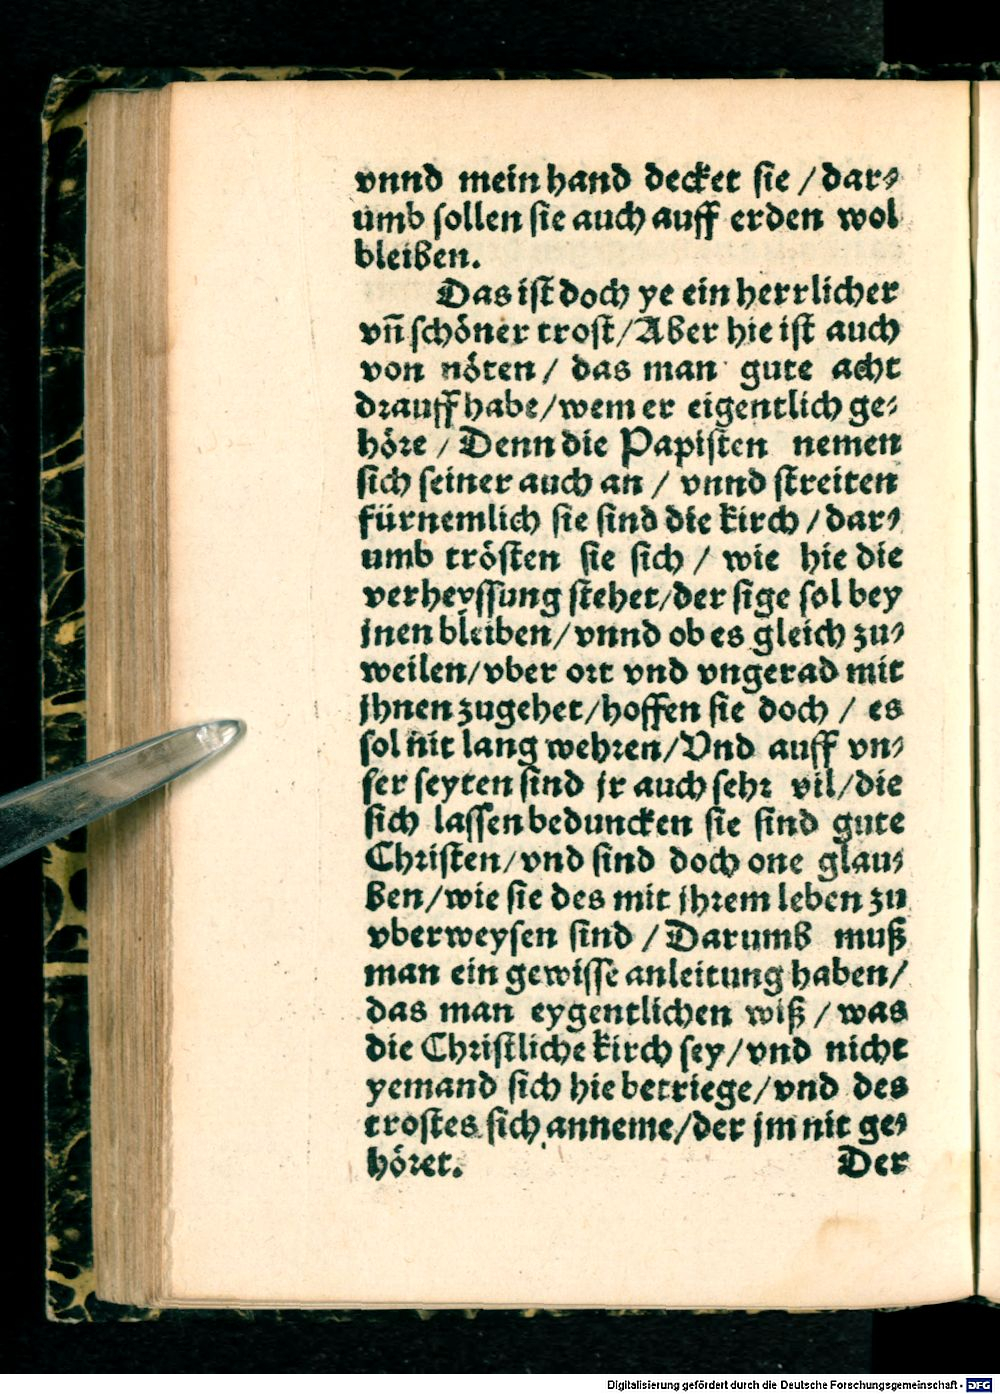 vnnd mein hand decket sie / dar⸗
umb sollen sie auch auff erden wol
bleiben.
Das ist doch ye ein herrlicher
vn̄ schöner trost / Aber hie ist auch
von nöten / das man gute acht
drauff habe / wem er eigentlich ge⸗
höre / Denn die Papisten nemen
sich seiner auch an / vnnd streiten
fürnemlich sie sind die kirch / dar⸗
umb trösten sie sich / wie hie die
verheyssung stehet / der sige sol bey
jnen bleiben / vnnd ob es gleich zu⸗
weilen / vber ort vnd vngerad mit
jhnen zugehet / hoffen sie doch / es
sol nit lang wehren / Vnd auff vn⸗
ser seyten sind jr auch sehr vil / die
sich lassen beduncken sie sind gute
Christen / vnd sind doch one glau⸗
ben / wie sie des mit jhrem leben zu
vberweysen sind / Darumb muß
man ein gewisse anleitung haben /
das man eygentlichen wiß / was
die Christliche kirch sey / vnd nicht
yemand sich hie betriege / vnd des
trostes sich anneme / der jm nit ge⸗
höret. Der
Digitalisierung gefördert durch die Deutsche Forschungsgemeinschaft - DFG